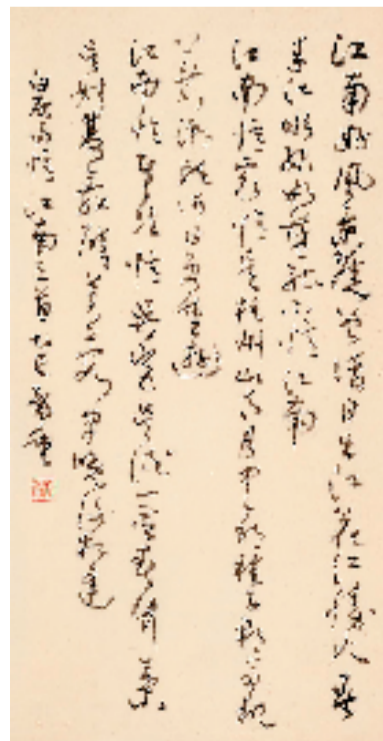 江南好風景舊曾諳日出江花紅勝火春
來江水綠如藍能不憶江南
江南憶最憶是杭州山寺月中尋桂子郡亭枕
上看潮頭何日更重遊
江南憶其次憶吳宮吳酒一杯春竹葉
吳娃雙舞醉芙蓉早晚復相逢
白居易憶江南三首